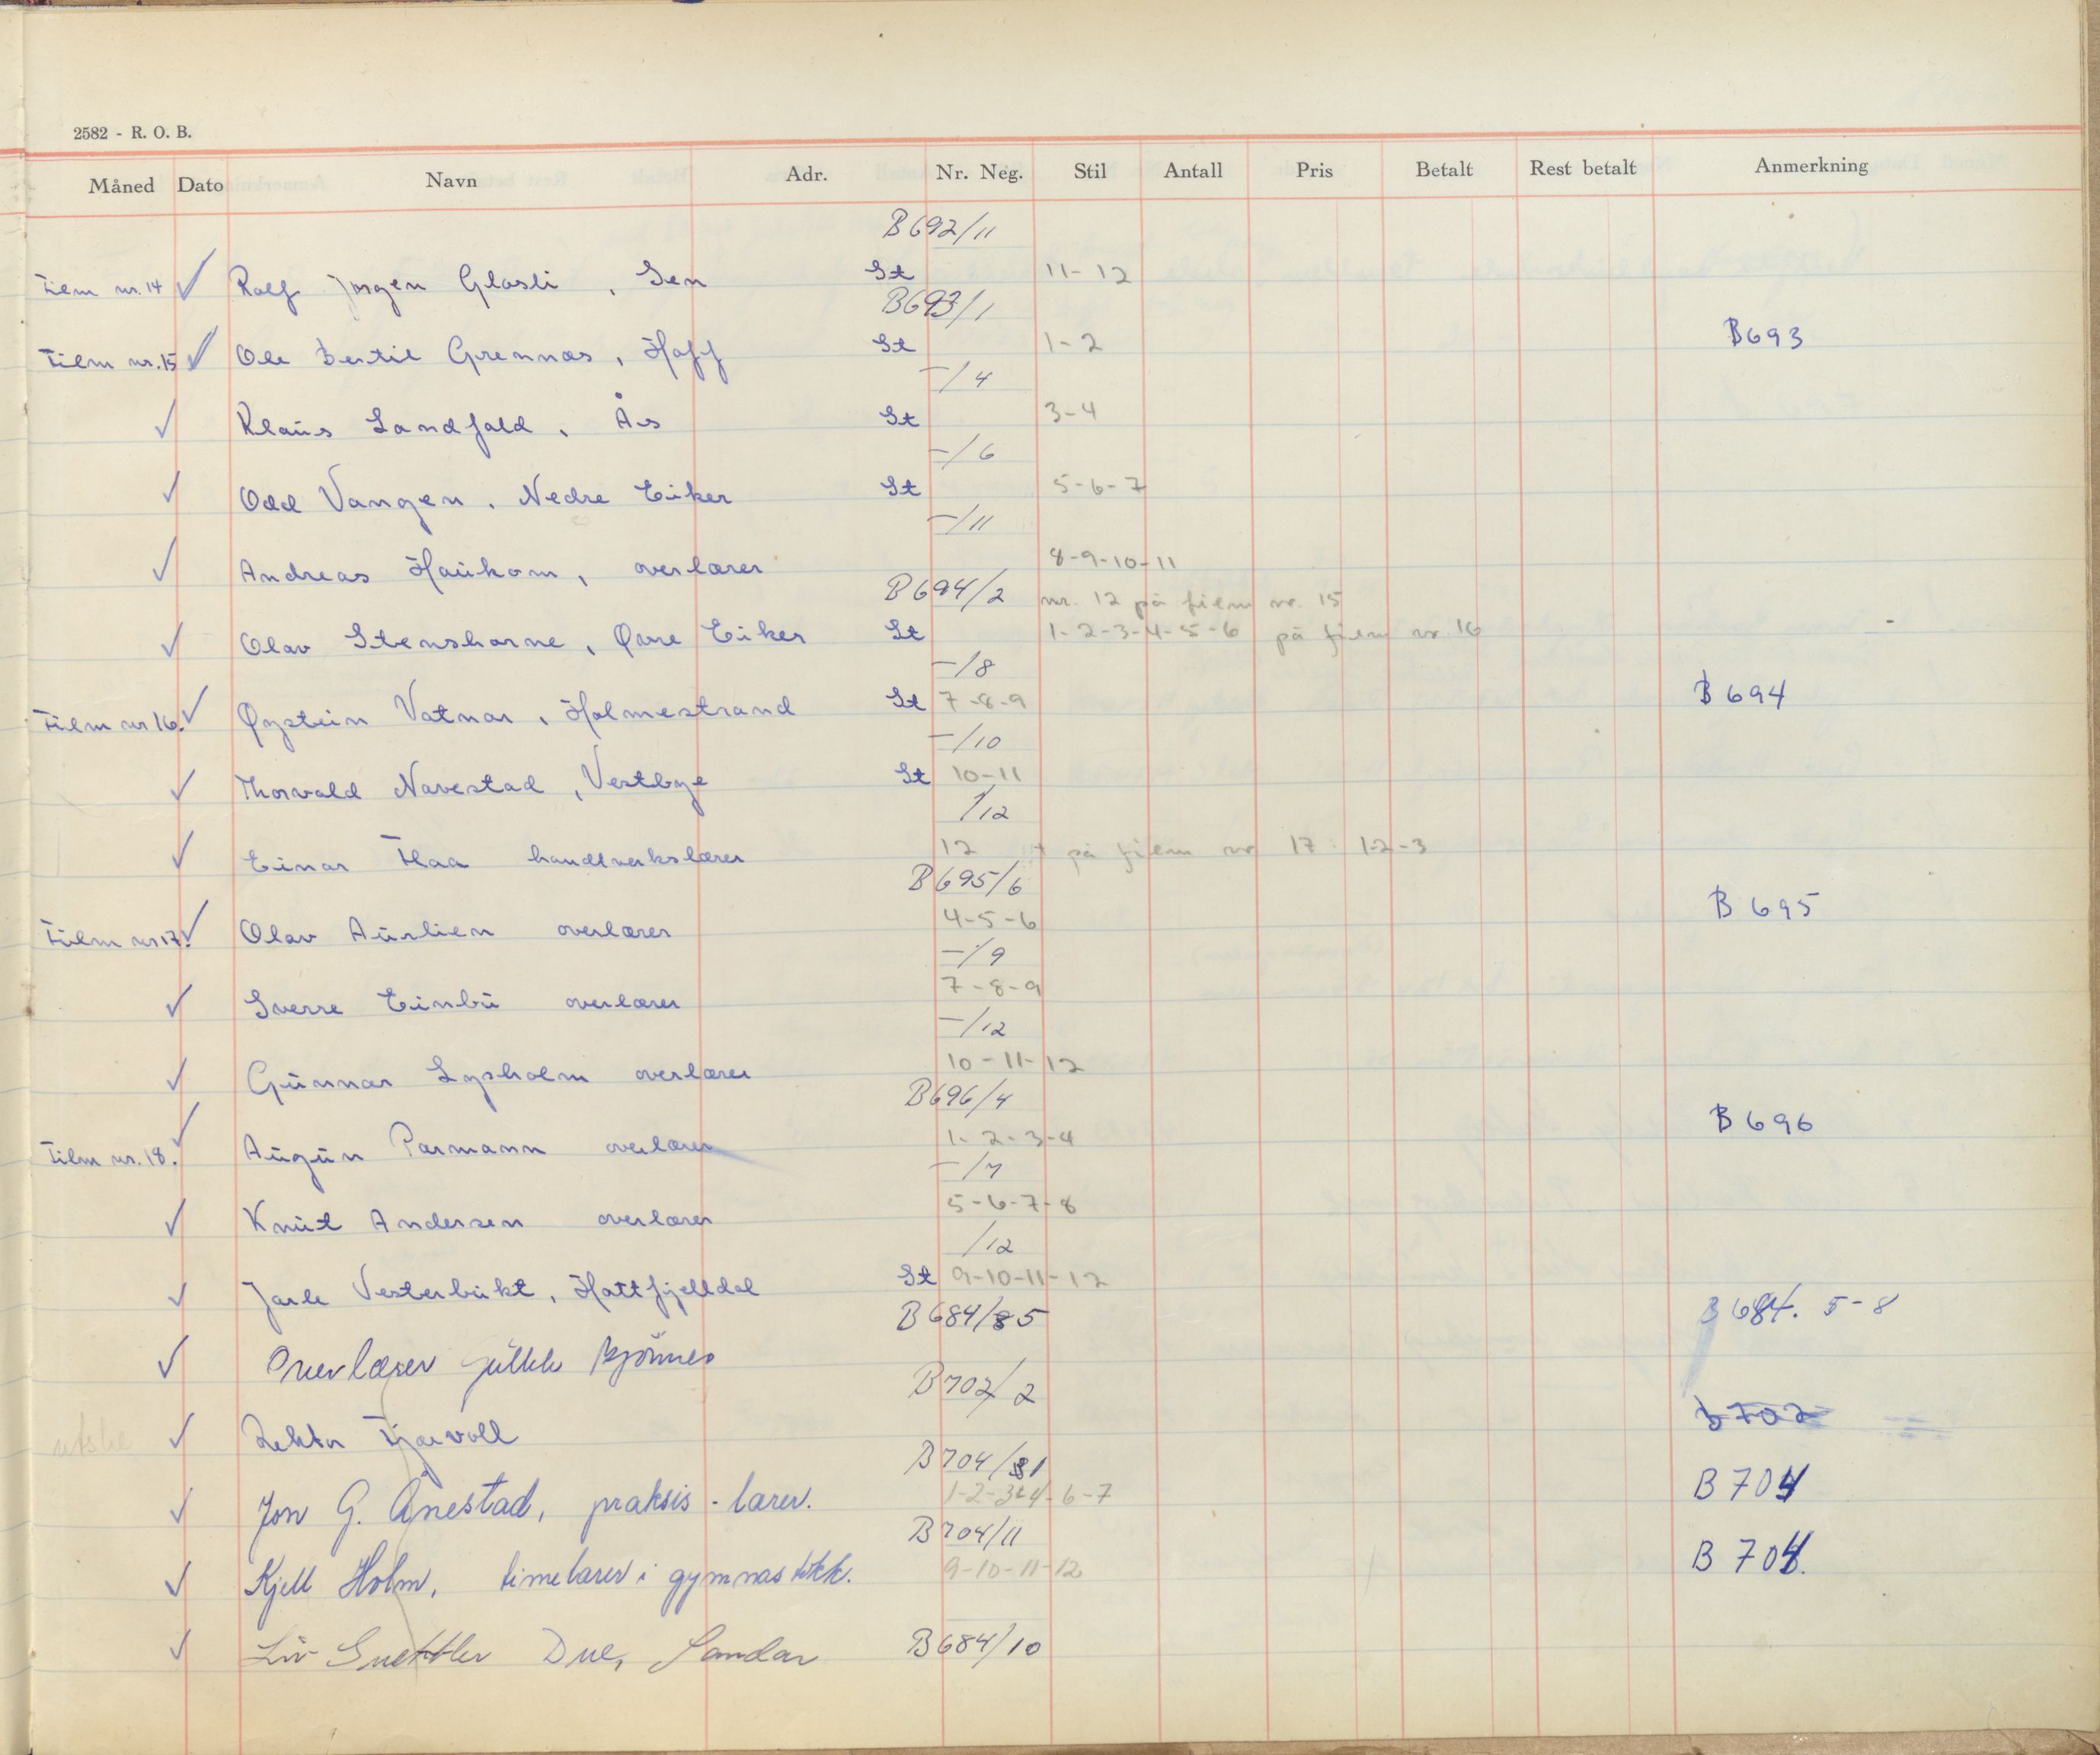 2582 - R. O. B.
Måned Dato Navn Adr. Nr. Neg. Stil Antall Pris Betalt Rest betalt Anmerkning
B692/11
Film nr. 14 ✓ Rolf Jørgen Glosli, Sem St 11-12
B693/1
Film nr. 15 ✓ Ole Bertil Grennæs, Hoff St 1-2 B693
-/4
✓ Klaus Landfald, Ås St 3-4
-/6
✓ Odd Vangen, Nedre Eiker St 5-6-7
-/11
✓ Andreas Haukom, overlærer 8-9-10-11
B694/2 nr. 12 på film nr. 15
✓ Olav Stenshorne, Øvre Eiker St 1-2-3-4-5-6 på film nr 16
-/8
Film nr 16. ✓ Øystein Vatnar, Holmestrand St 7-8-9 B694
-/10
✓ Thorvald Navestad, Vestbye St 10-11
/12
✓ Einar Flaa handverkslærer 12 + på film nr 17: 1-2-3
B695/6
Film nr 17. ✓ Olav Aurlien overlærer 4-5-6 B 695
-/9
✓ Sverre Einbu overlærer 7-8-9
-/12
✓ Gunnar Lysholm overlærer 10-11-12
B696/4
Film nr. 18. ✓ Augun Parmann overlærer 1-2-3-4 B 696
-/7
✓ Knut Andersen overlærer 5-6-7-8
/12
✓ Jarle Vesterbukt, Hattfjelldal St 9-10-11-12
B684/5 B 684. 5-8
✓ Overlærer
B702/2
✓ Lektor Fjærvoll B702
B704/1
✓ Jon G. Ånestad, praksis-lærer. 1-2-3-4-6-7 B 704
B704/11
✓ Kjell Holm, timelærer i gymnastikk. 9-10-11-12 B 704.
✓ Liv Guettler Due, Sandar B684/10